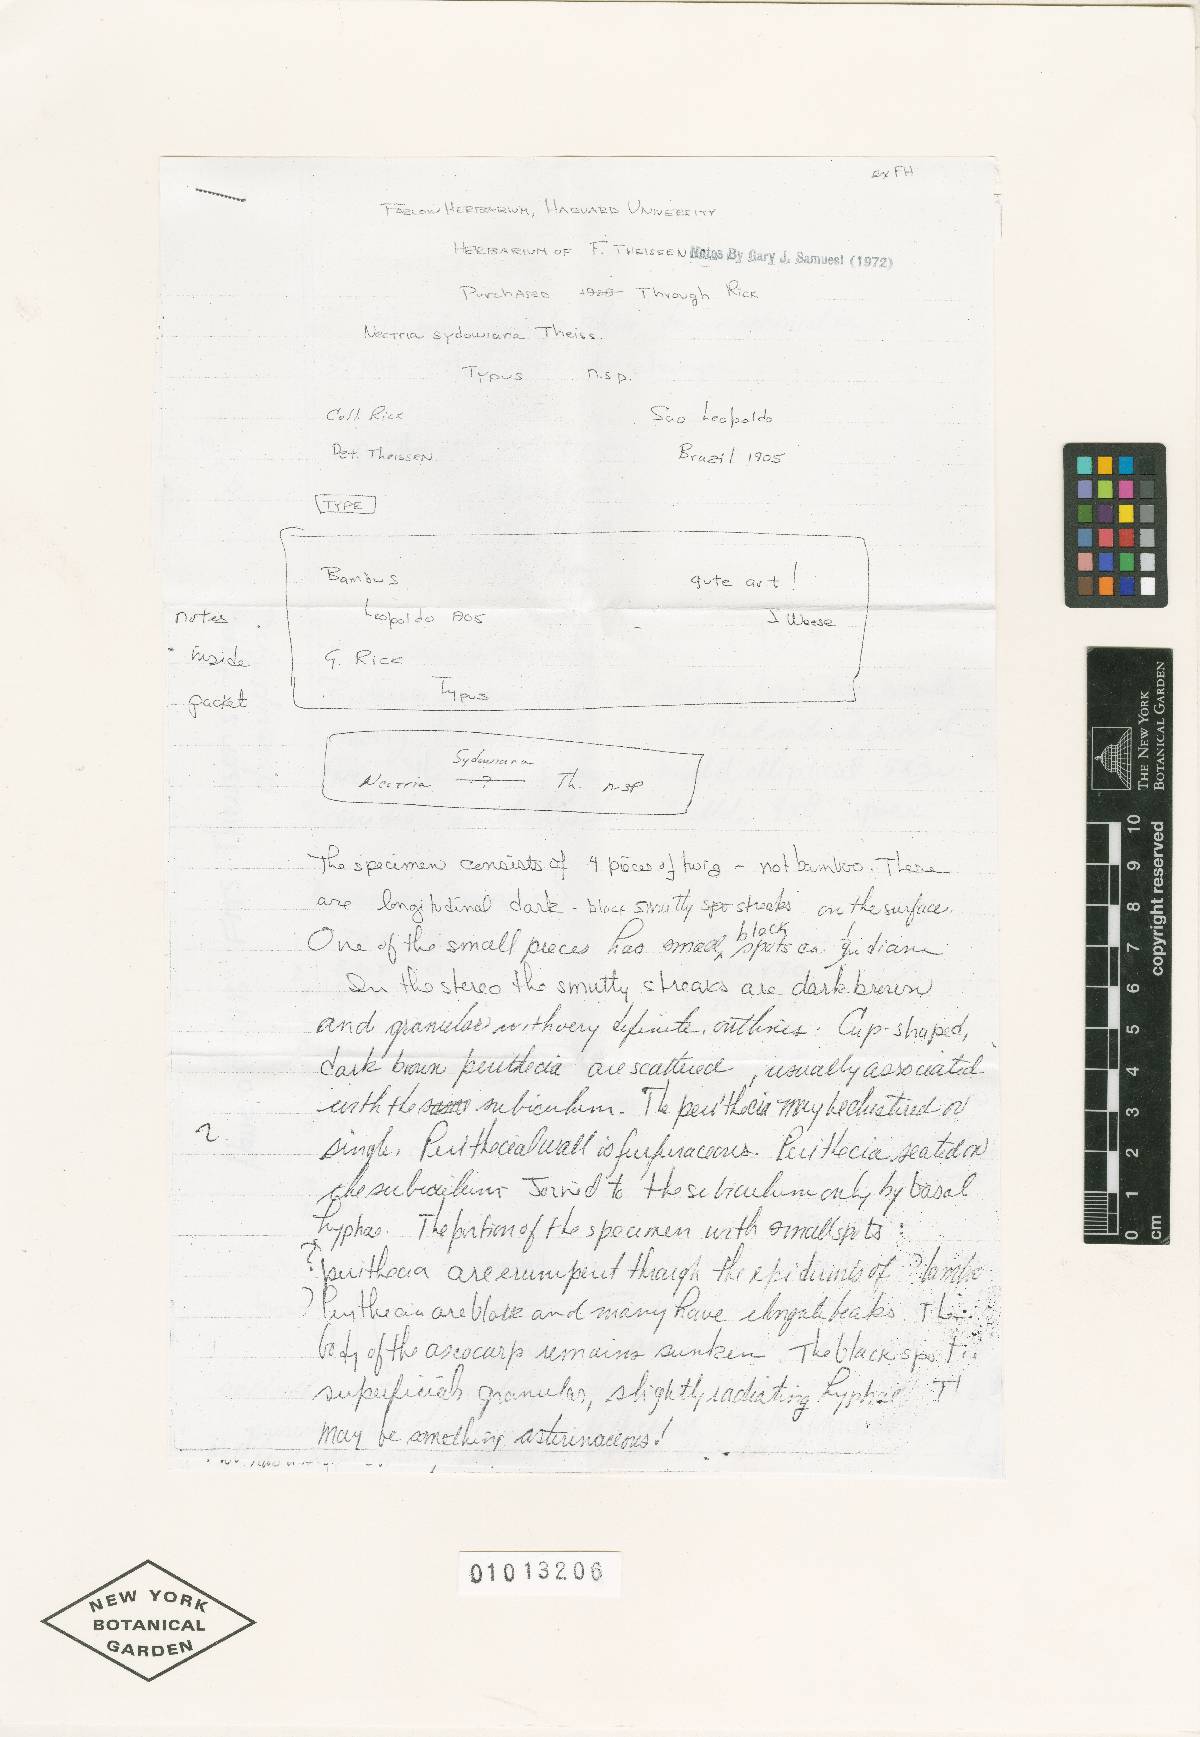 ex FH
Farlow Herbarium, Harvard University
Herbarium of F. Theissen Notes By Gary J. Samuesl (1972)
Purchased 1920 Through Rick
Nectria sydowiana Theiss.
Typus n.sp.
Coll. Rick Sao Leopoldo
Det. Theissen Brazil 1905
TYPE
Bambus gute art!
notes Leopoldo 1905 J Weese
inside G. Rick
packet Typus
Sydowiana
Nectria ? Th. n.sp
The specimen consists of 4 pieces of twig - not bamboo. There
are longitudinal dark - black smutty streaks on the surface.
One of the small pieces has small, black spots
In the stereo the smutty streaks are dark brown
and granular with very definite outlines. Cup-shaped,
dark brown perithecia are scattered, usually associated
with the subiculum. The perithecia may be clustered or
2 single. Perithecial wall is furfuraceous. Perithecia seated on
the subiculum joined to the subiculum only by basal
hyphae. The portion of the specimen with small spots:
? perithecia are erumpent through the epidermis of ?
Perithecia are black and many have elongate beaks. The
body of the ascocarp remains sunken. The black spot is
superficial granular, slightly radiating hyphae.
may be something asterinaceous!
01013206
NEW YORK
BOTANICAL
GARDEN
THE NEW YORK
BOTANICAL GARDEN
copyright reserved
0 1 2 3 4 5 6 7 8 9 10
cm